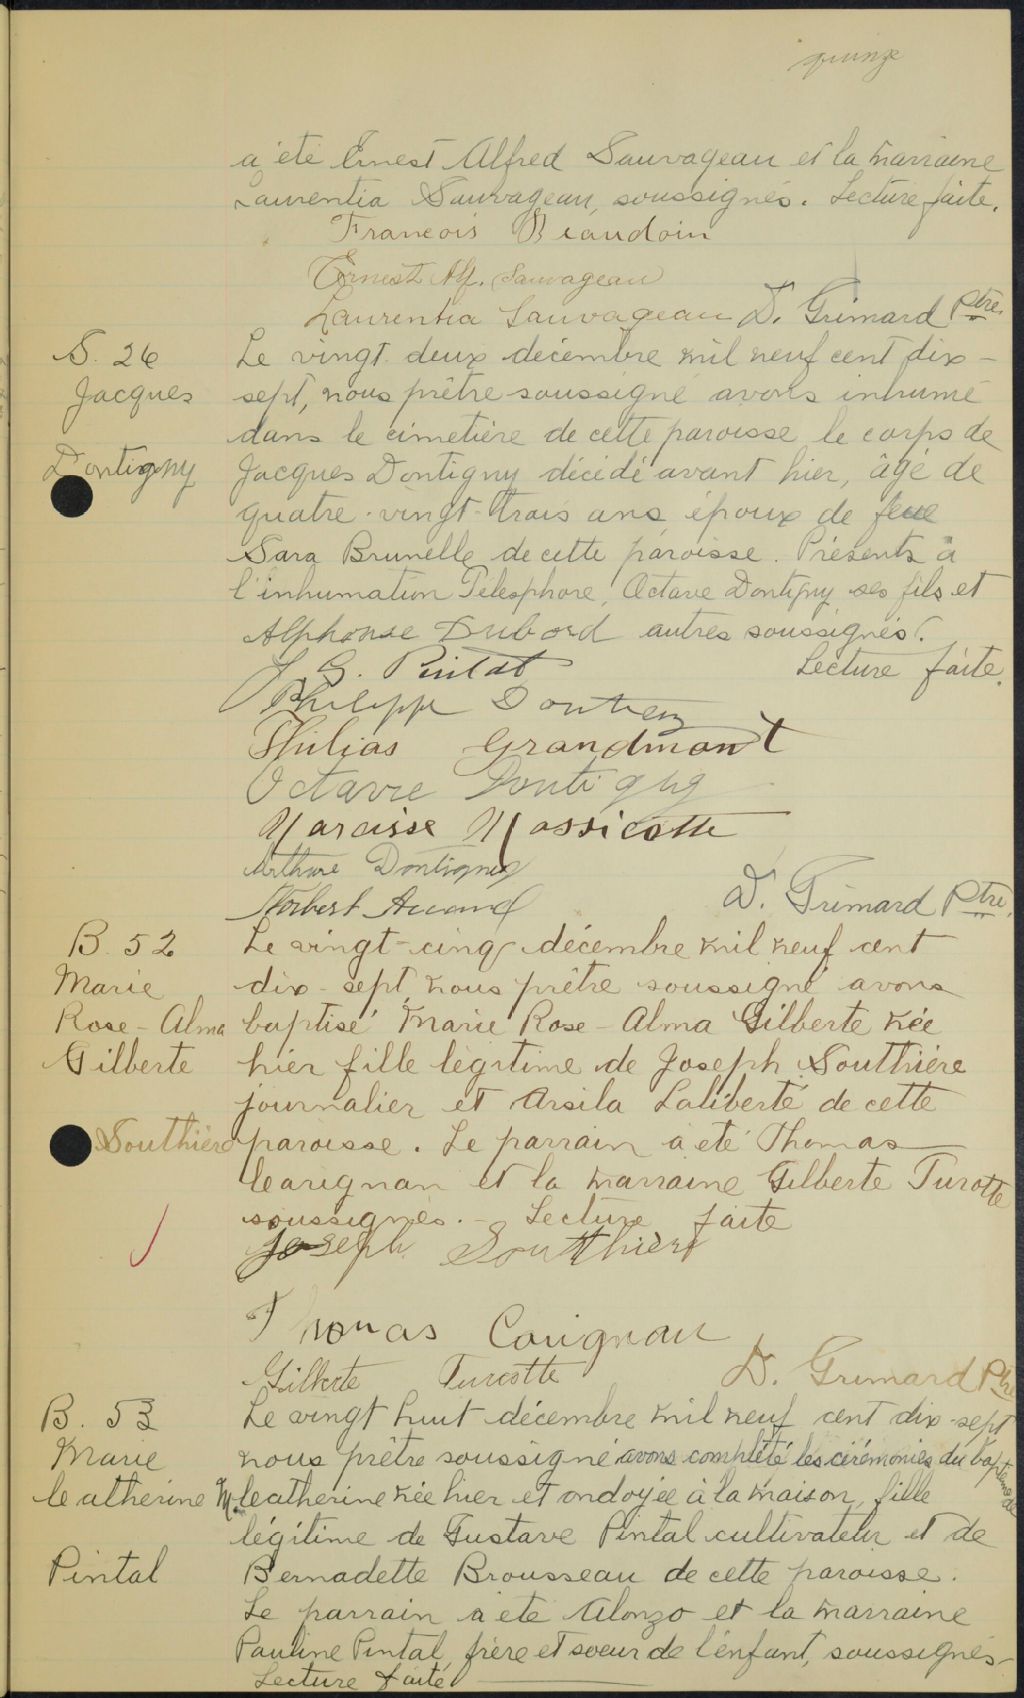 quinze
a été Ernest Alfred Sauvageau et la marraine
Laurentia Sauvageau, soussignés. Lecture faite.
Francois Beaudoin
Ernest Alf. Sauvageau
Laurentia Sauvageau D. Grimard Ptre.
S. 26
Jacques
Dontigny
Le vingt deux décembre mil neuf cent dix-
sept, nous prêtre soussigné avons inhumé
dans le cimetière de cette paroisse le corps de
Jacques Dontigny décédé avant hier, âgé de
quatre-vingt-trois ans époux de feue
Sara Brunelle de cette paroisse. Présents à
l'inhumation Télesphore, Octave Dontigny ses fils et
Alphonse Dubord autres soussignés.
Lecture faite.
Philippe
Philias Grandmont
Octave Dontigny
Narcisse Massicotte
Arthure Dontigny
Norbert
D. Grimard Ptre.
B. 52
Marie
Rose-Alma
Gilberte
Southière
Le vingt-cinq décembre mil neuf cent
dix-sept, nous prêtre soussigné avons
baptisé Marie Rose-Alma Gilberte née
hier fille légitime de Joseph Southière
journalier et Arsila Laliberté de cette
paroisse. Le parrain a été Thomas
Carignan et la marraine Gilberte Turcotte
soussignés. - Lecture faite
Joseph Southière
Thomas Carignan
Gilberte Turcotte D. Grimard Ptre
B. 53
Marie
Catherine
Pintal
Le vingt huit décembre mil neuf cent dix-sept
nous prêtre soussigné avons complété les cérémonies du baptême de
M. Catherine née hier et ondoyée à la maison, fille
légitime de Gustave Pintal cultivateur et de
Bernadette Brousseau de cette paroisse.
Le parrain a été Alonzo et la marraine
Pauline Pintal, frère et soeur de l'enfant, soussignés
Lecture faite